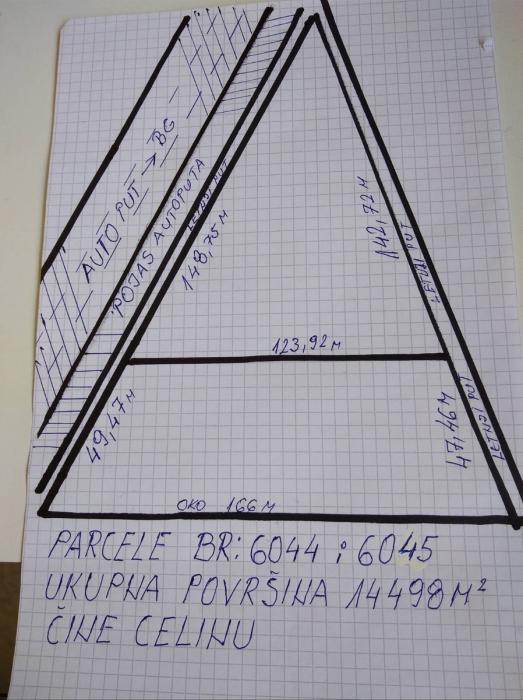 AUTO PUT → BG
POJAS AUTOPUTA
LETNJI PUT
148,75 M
142,72 M
LETNJI PUT
123,92 M
49,47 M
47,46 M
LETNJI PUT
OKO 166 M
PARCELE BR: 6044 i 6045
UKUPNA POVRŠINA 14498 M²
ČINE CELINU